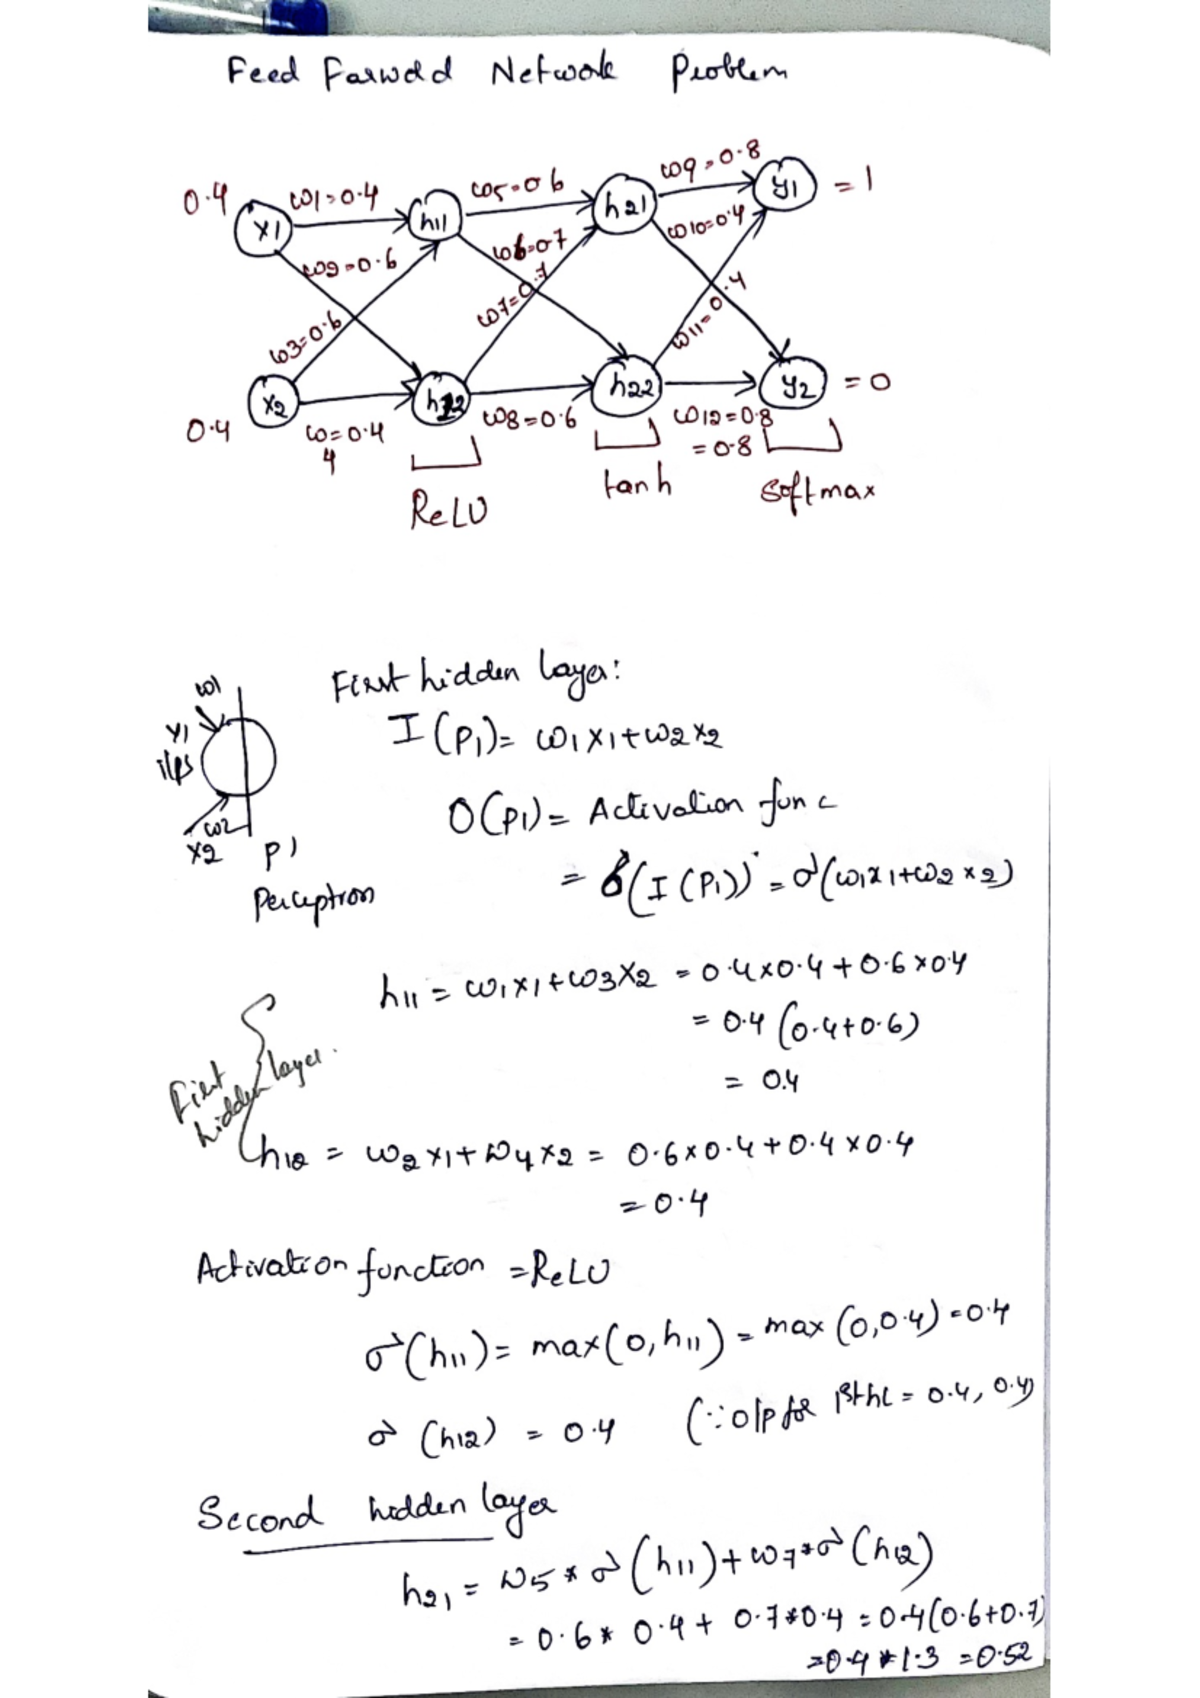 Feed Farward Network Problem
0.4 x1 w1=0.4 h11 w5=0.6 h21 w9=0.8 y1 =1
w2=0.6 w6=0.7 w10=0.4
w3=0.6 w7=0.7 w11=0.4
0.4 x2 w4=0.4 h12 w8=0.6 h22 w12=0.8 y2 =0
=0.8
ReLU tanh Softmax
First hidden layer:
w1
x1
i/ps
w2
x2 P1
Perceptron
I(P1)= w1x1+w2x2
O(P1)= Activation func
= σ(I(P1)) = σ(w1x1+w2x2)
h11 = w1x1+w3x2 = 0.4x0.4+0.6x0.4
= 0.4(0.4+0.6)
= 0.4
First hidden layer.
h12 = w2x1+w4x2 = 0.6x0.4+0.4x0.4
=0.4
Activation function =ReLU
σ(h11)= max(0,h11) = max(0,0.4)=0.4
σ(h12) = 0.4 (∵o/p for 1st hl = 0.4, 0.4)
Second hidden layer
h21 = w5*σ(h11)+w7*σ(h12)
= 0.6*0.4+0.7*0.4 =0.4(0.6+0.7)
=0.4*1.3 =0.52